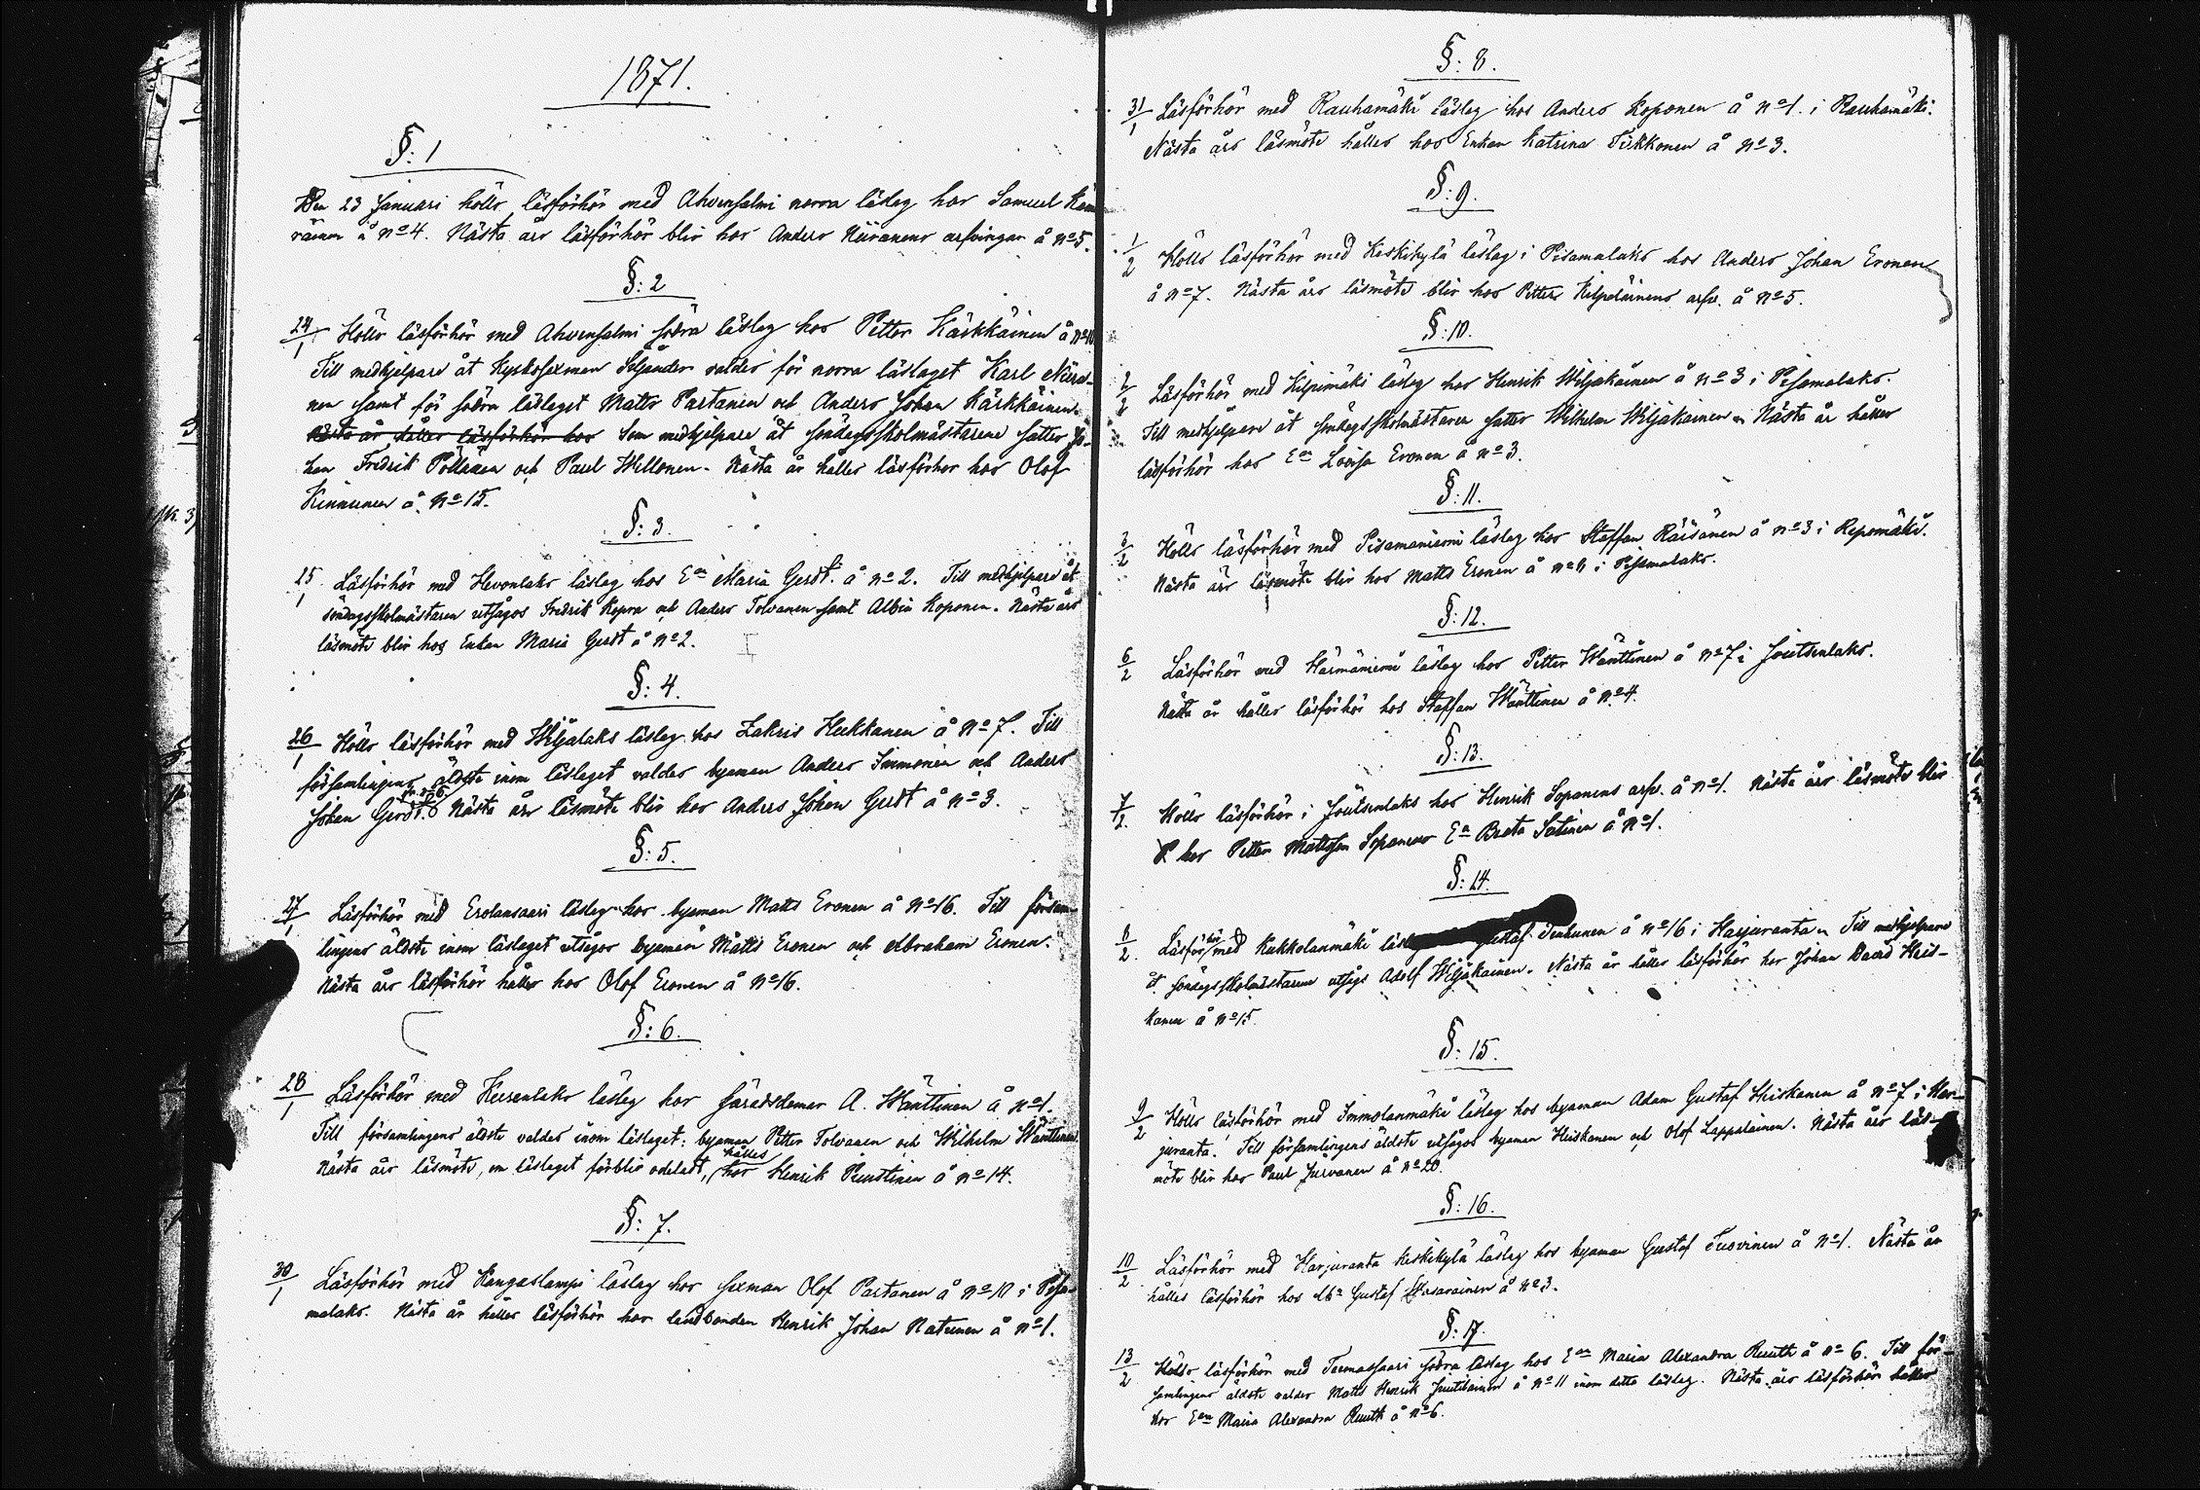 1871.
§: 1
Den 23 Januari hölls läsförhör med Ahvensalmi norra läslag hos Samuel Kär
räinen å No 4. Nästa års läsförhör blir hos Anders Niiranens arfvingar å No 5.
§: 2
24/1 Hölls läsförhör med Ahvensalmi södra läslag hos Petter Kärkkäinen å No 10
Till medhjelpare åt Kyrkosexman Siljander valdes för norra läslaget Karl Niira-
nen samt för södra läslaget Matts Partanen och Anders Johan Kärkkäinen.
Nästa år hålles läsförhör hos Som medhjelpare åt söndagsskolmästarene sattes Jo-
han Fredrik Pöllänen och Paul Willonen. Nästa år hålles läsförhör hos Olof
Kinnunen å No 15.
§: 3.
25/1 Läsförhör med Hevonlaks läslag hos Ean Maria Gerdt å No 2. Till medhjelpare åt
söndagsskolmästaren utsågos Fredrik Repva och Anders Tolvanen samt Albin Koponen. Nästa års
läsmöte blir hos Enkan Maria Gerdt å No 2.
§: 4.
26/1 Hölls läsförhör med Wiljalaks läslag hos Zakris Heikkanen å No 7. Till
församlingens äldste inom läslaget valdes byeman Anders Immonen och Anders
Johan Gerdt. Nästa års läsmöte blir hos Anders Johan Gerdt å No 3.
§: 5.
27/1 Läsförhör med Erolansaari läslag hos byeman Matts Eronen å No 16. Till försam-
lingens äldste inom läslaget utsågos byemän Matts Eronen och Abraham Eronen.
Nästa års läsförhör hålles hos Olof Eronen å No 16.
§: 6.
28/1 Läsförhör med Kurenlaks läslag hos häradsdomar A. Wänttinen å No 1.
Till församlingens äldste valdes inom läslaget: byeman Petter Tolvanen och Wilhelm Wänttinen.
hålles
Nästa års läsmöte, om läslaget förblir odeladt, hos Henrik Puustinen å No 14.
§: 7.
30/1 Läsförhör med Kangaslampi läslag hos sexman Olof Partanen å No 10 i Pisa-
malaks. Nästa år hålles läsförhör hos landbonden Henrik Johan Natunen å No 1.
§: 8.
31/1 Läsförhör med Rauhamäki läslag hos Anders Koponen å No 1. i Rauhamäki.
Nästa års läsmöte hålles hos Enkan Katrina Tiikkonen å No 3.
§: 9.
1/2 Hölls läsförhör med Keskikylä läslag i Pisamalaks hos Anders Johan Eronen
å No 7. Nästa års läsmöte blir hos Petter Kilpeläinens arfv. å No 5.
§: 10.
2/2 Läsförhör med Kilpimäki läslag hos Henrik Wiljakainen å No 3 i Pisamalaks.
Till medhjelpare åt söndagsskolmästaren sattes Wilhelm Wiljakainen. Nästa år hålles
läsförhör hos Ean Lovisa Eronen å No 3.
§: 11.
3/2 Hölls läsförhör med Pisamaniemi läslag hos Staffan Räisänen å No 3 i Repomäki.
Nästa års läsmöte blir hos Matts Eronen å No 11 i Pisamalaks.
§: 12.
6/2 Läsförhör med Härmäniemi läslag hos Petter Wänttinen å No 7 i Joutsenlaks.
Nästa år hålles läsförhör hos Staffan Wänttinen å No 4.
§: 13.
7/2 Hölls läsförhör i Joutsenlaks hos Henrik Sopanens arfv. å No 1. Nästa års läsmöte blir
hos Petter Matsson Sopanens Ea Beata Satinen å No 1.
§: 14.
8/2 Läsförhör med Kukkolanmäki läslag Gustaf Tenhunen å No 16 i Harjuranta. Till medhjelpare
åt söndagsskolmästaren utsågs Adolf Wiljakainen. Nästa år hålles läsförhör hos Johan David Heis-
kanen å No 15.
§: 15.
9/2 Hölls läsförhör med Immolanmäki läslag hos byeman Adam Gustaf Hiiskanen å No 7 i Har-
juranta. Till församlingens äldste utsågos byeman Heiskanen och Olof Lappalainen. Nästa års läs-
möte blir hos Paul Jurvanen å No 20.
§: 16.
10/2 Läsförhör med Harjuranta Keskikylä läslag hos byeman Gustaf Tusvinen å No 1. Nästa år
hålles läsförhör hos Gustaf å No 3.
§: 17.
13/2 Hölls läsförhör med Tuomassaari södra läslag hos Ean Maria Alexandra Ruuth å No 6. Till för-
samlingens äldste valdes Matts Henrik Juutilainen å No 11 inom detta läslag. Nästa års läsförhör hålles
hos Ean Maria Alexandra Ruuth å No 6.